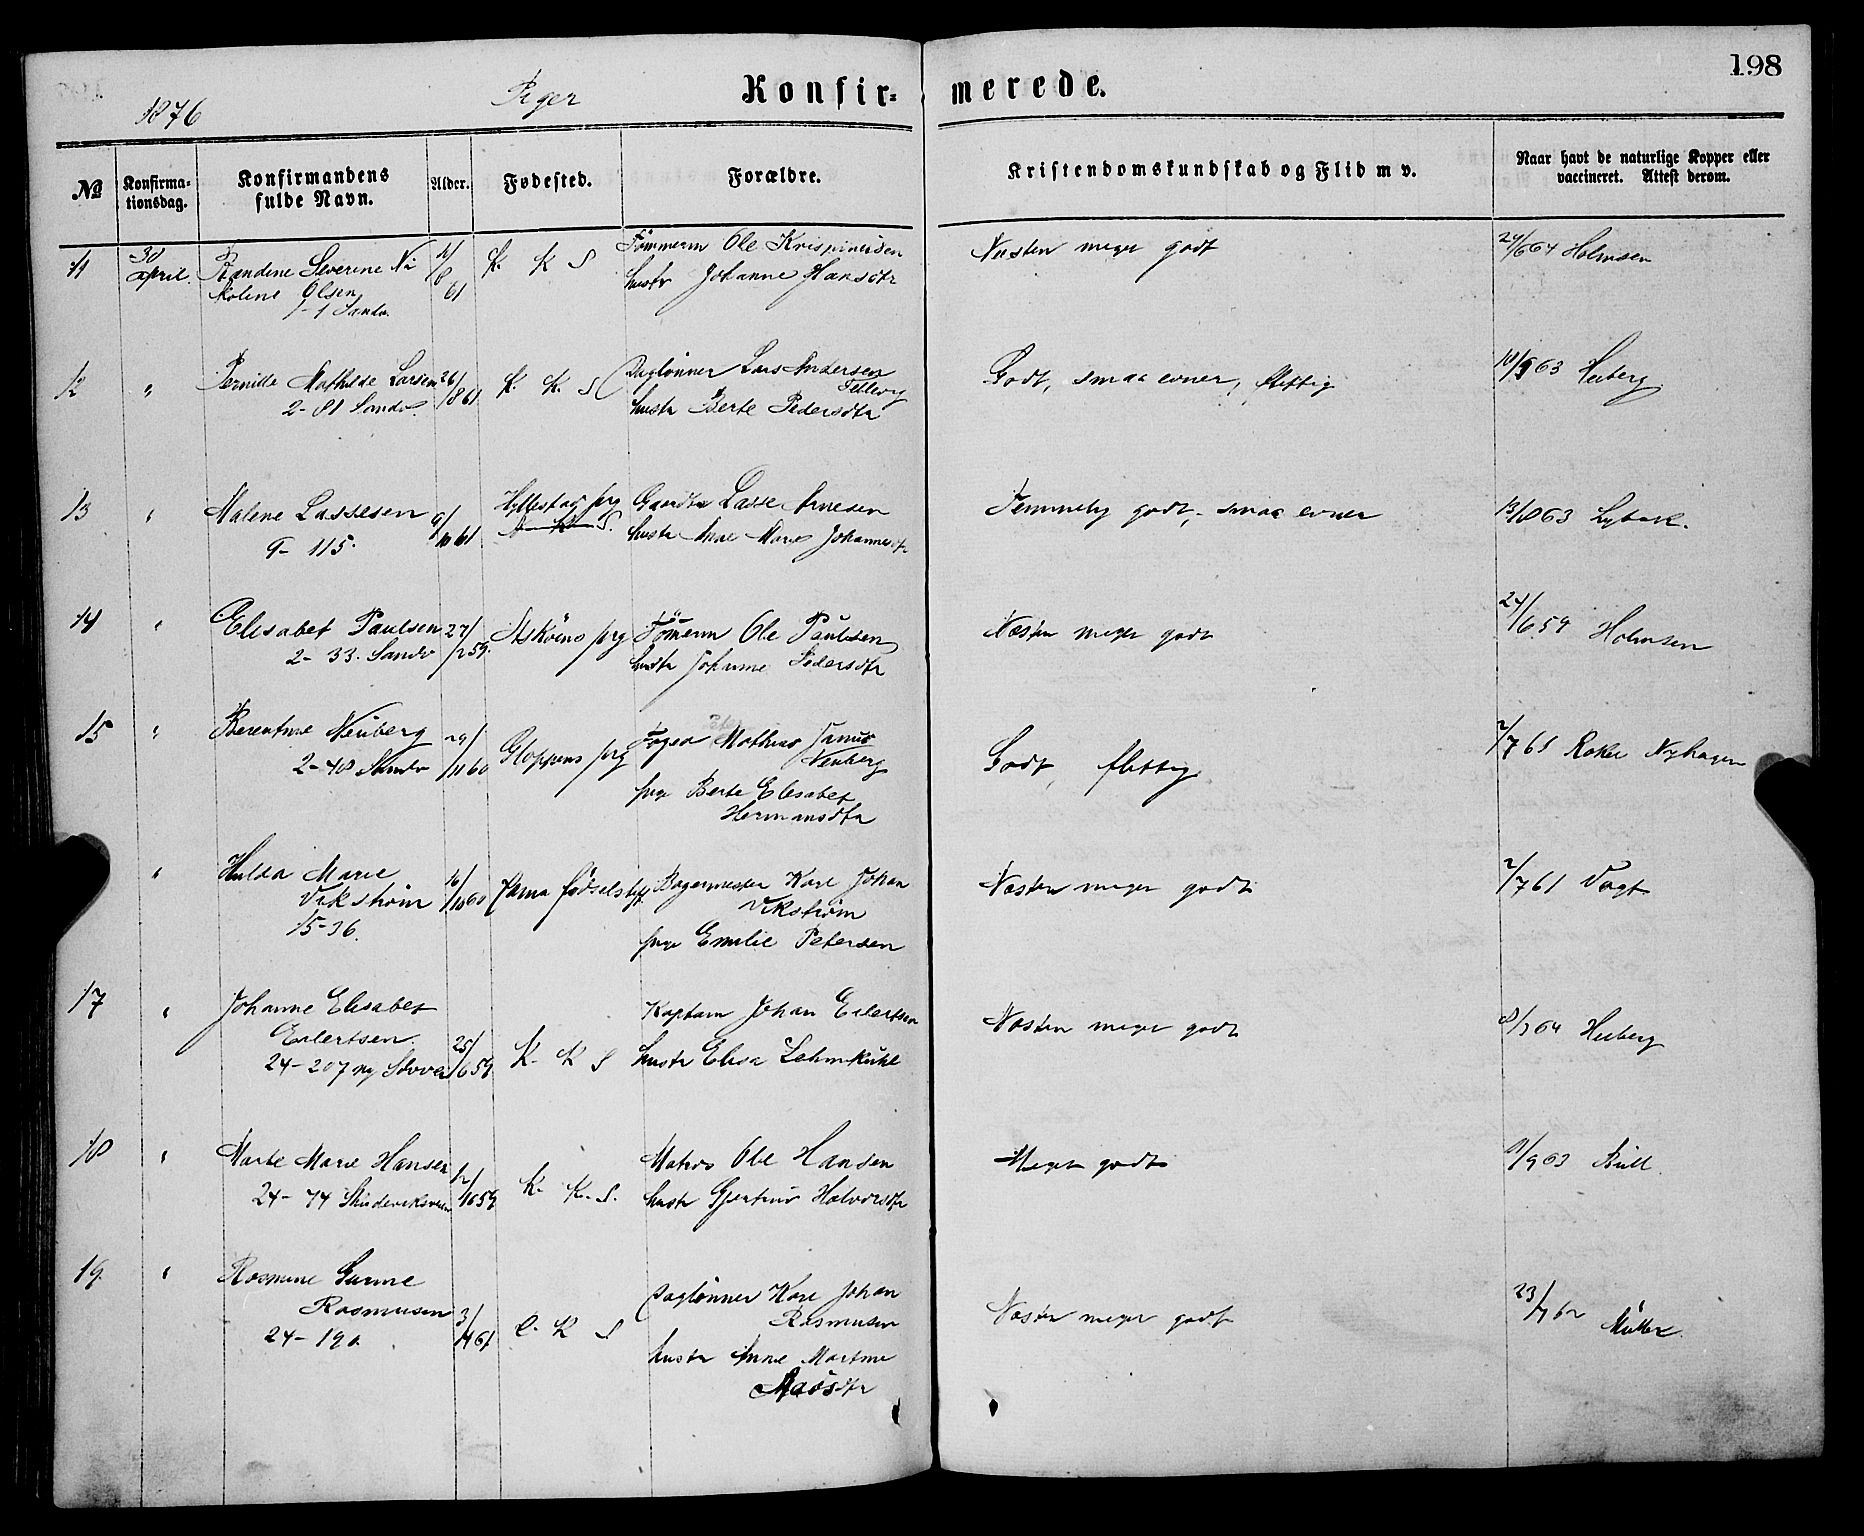 198
1876
Piger
Konfir- merede.
№
Konfirma-
tionsdag.
Konfirmandens
fulde Navn.
Alder.
Fødested.
Forældre.
Kristendomskundskab og Flid m v.
Naar havt de naturlige Kopper eller
vaccineret. Attest derom.
11
30
april.
Randine Severine Ni
koline Olsen
1-1 Sandv.
11/8
61
K. K S
Tømmerm Ole Krispinusen
hustr Johanne Hansdtr
Næsten meget godt
24/6 64 Holmsen
12
"
Pernille Mathilde Larsen
2-81 Sandv.
26/8 61
K. K. S
Daglønner Lars Andersen
hustr Berte Pedersdtr
Godt, smaa evner, flittig
63 Heiberg
13
"
Malene Lassesen
9- 115.
9/10 61
Hyllestad prg
Gaardbr Lasse Arnesen
hustr Ane Marie Johannesdtr
Temmelig godt, smaa evner
13/8 63
14
"
Elisabet Paulsen
2- 33. Sandv
27/2 59.
Askøens prg
Tømerm Ole Paulsen
hustr Johanne Pedersdtr
Næsten meget godt
24/6 59 Holmsen
15
"
Berentine Neuberg
2-48 Sandv
29/11 60
Gloppens prg
Foged Mathias Janus
Neuberg
pige Berte Elisabet
Hermansdtr
Godt, flittig
Nyhagen
"
Hulda Marie
Vikstrøm
15-36.
16/10 60
fødselsstift
Bagermester Karl Johan
Vikstrøm
pige Emilie Petersen
Næsten meget godt
2/7 61 Vogt
17
"
Johanne Elisabet
Eilertsen.
24-207
25/6 59
K. K S
Kaptain Johan Eilertsen
hustr Elisa Lehmkuhl
Næsten meget godt
Heiberg
18
"
Marte Marie Hansen
24- 74
12/10 59
K. K. S.
Matros Ole Hansen
hustr Gjertrud Halvorsdtr
Meget godt
9/9 63 Bull.
19.
"
Rasmine Gurine
Rasmusen
24- 190
3/4 61
K S
Daglønner Karl Johan
Rasmusen
hustr Anne Martine
Næsten meget godt
23/7 62 Müller.